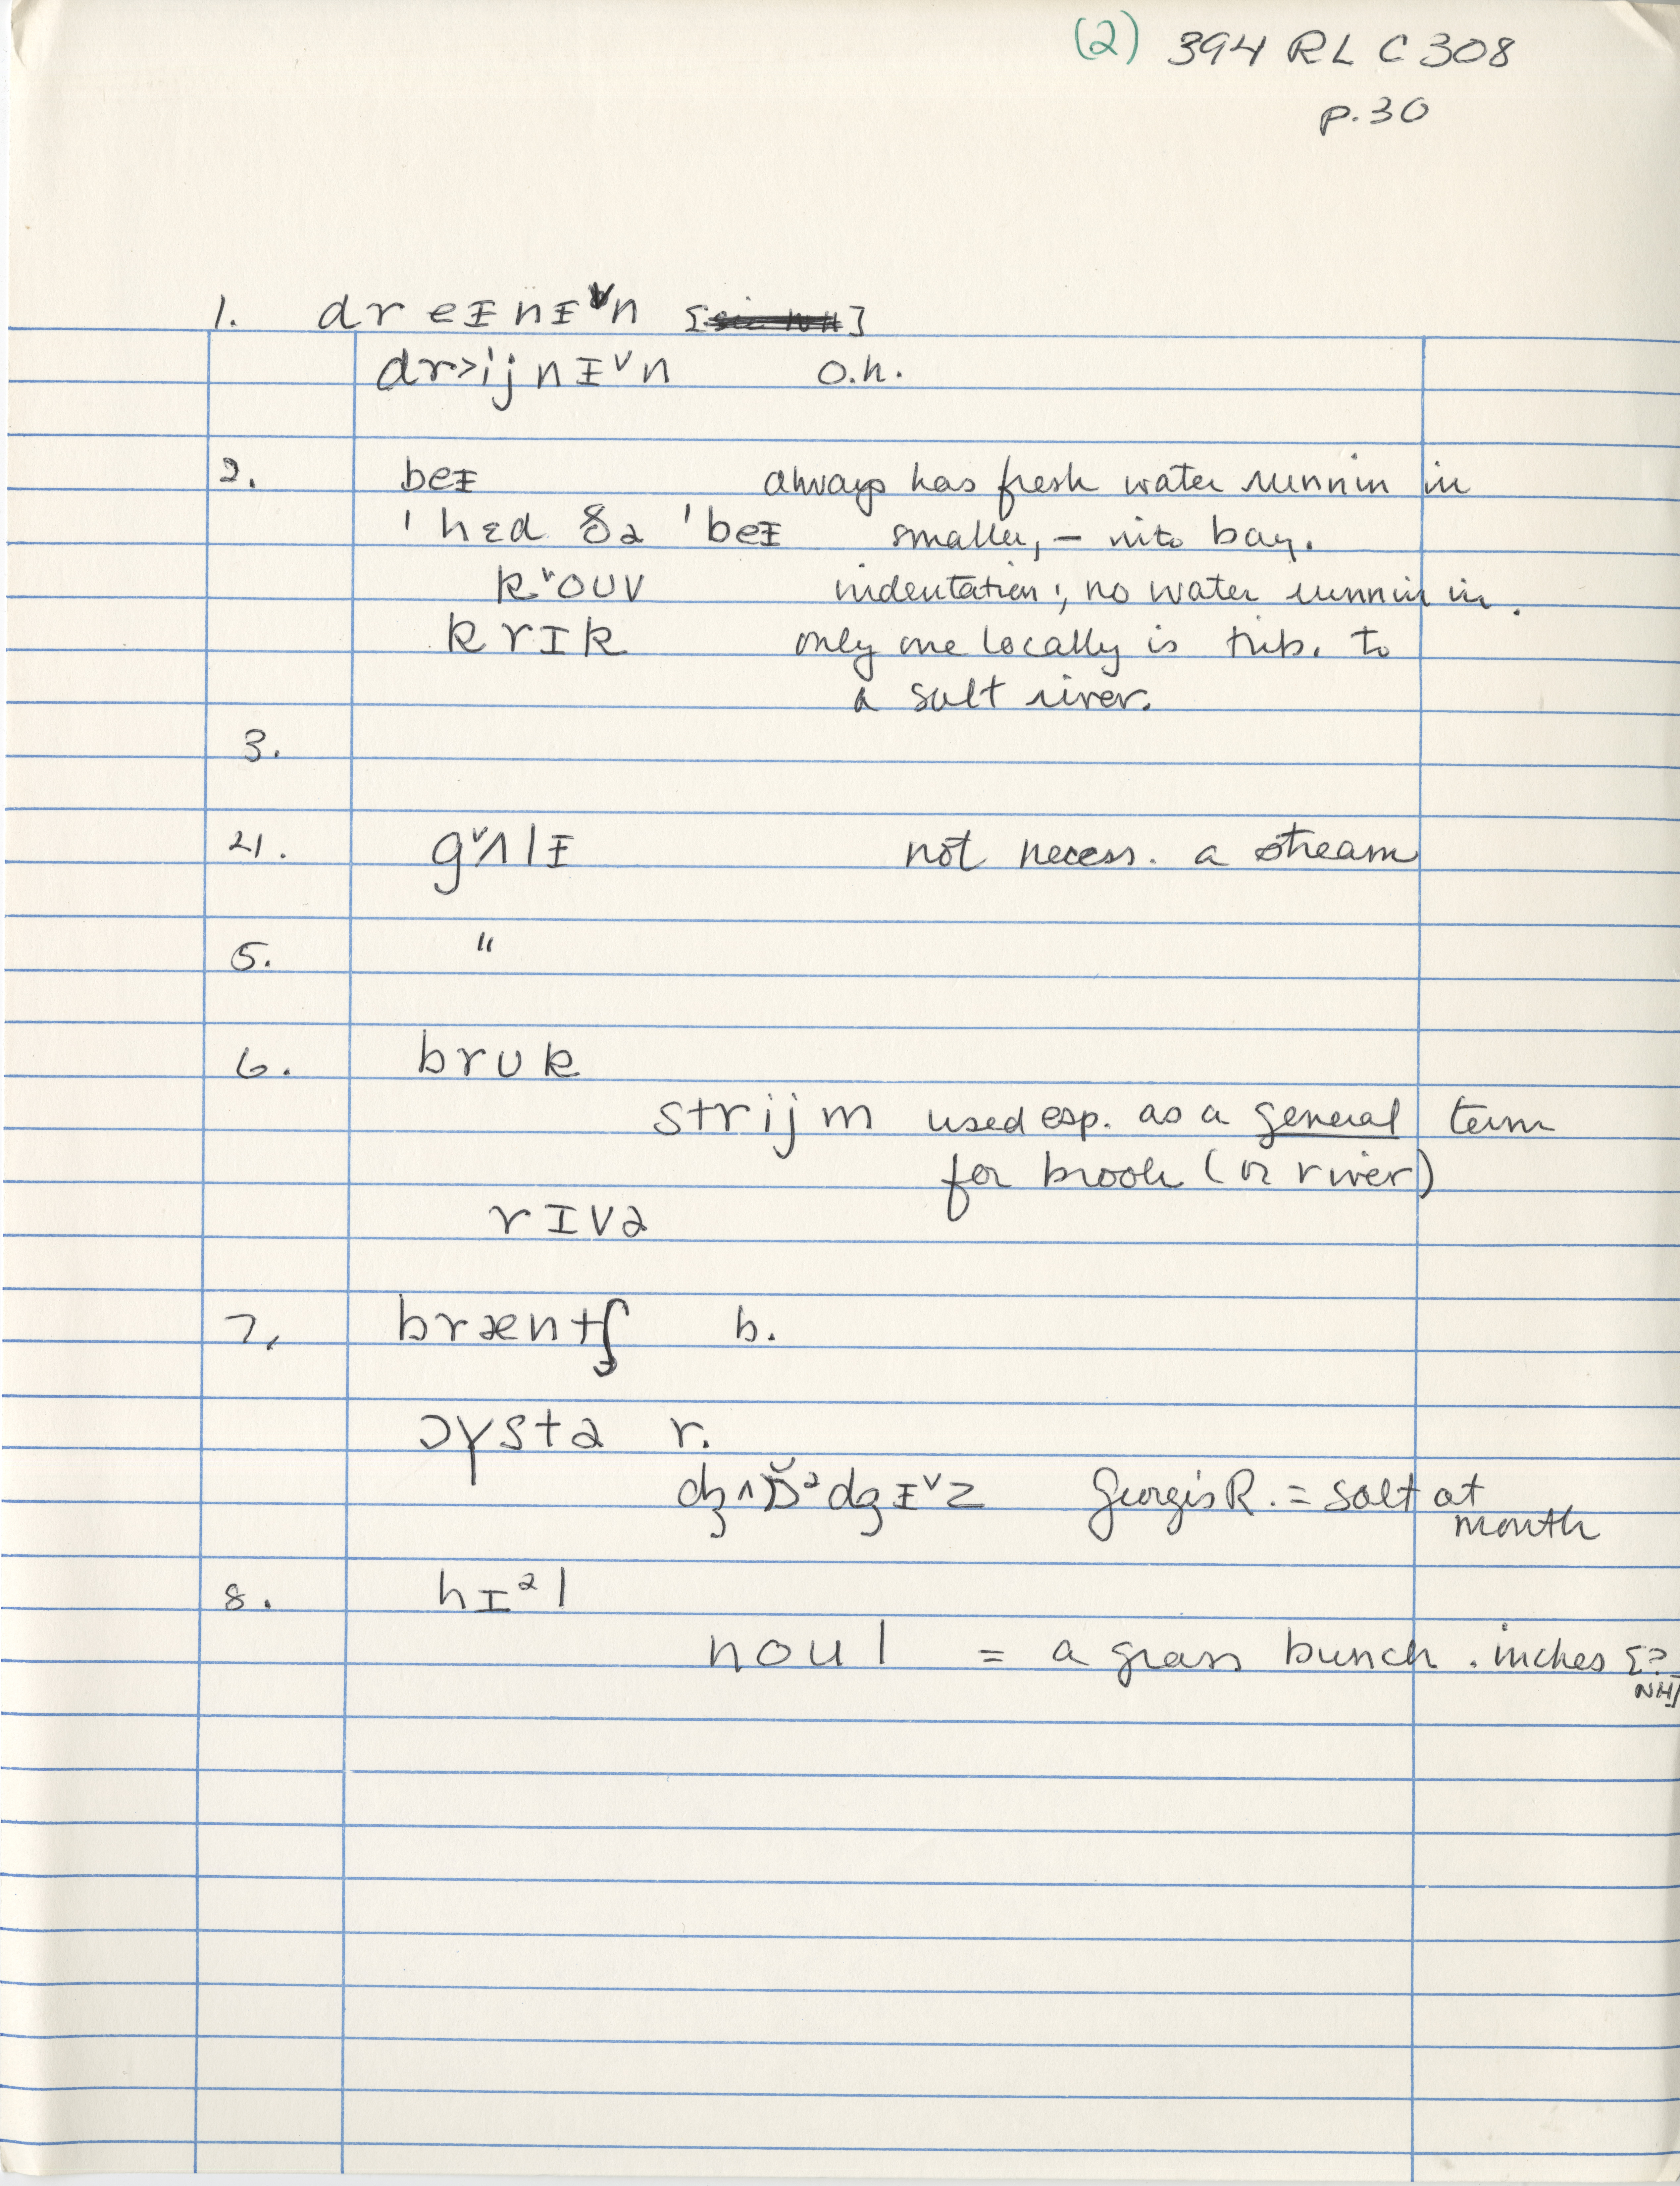 (2) 394 RL C 308
p.30
1. dr eɪ nɪ ᵛn
dr>ij nɪᵛn o.h.
2. beɪ always has fresh water runnin in
ˈhɛd ðə ˈbeɪ smaller, – into bay.
kᵛouv indentation; no water runnin in.
krɪk only one locally is trib. to
a salt river.
3.
4. gᵛʌlɪ not necess. a stream
5. "
6. brʊk
strijm used esp. as a general term
for brook (or river)
rɪvə
7. bræntʃ b.
ɔɣstə r.
Georgis R. = salt at
mouth
8. hɪᵊl
noul = a grass bunch. inches [?
NH]